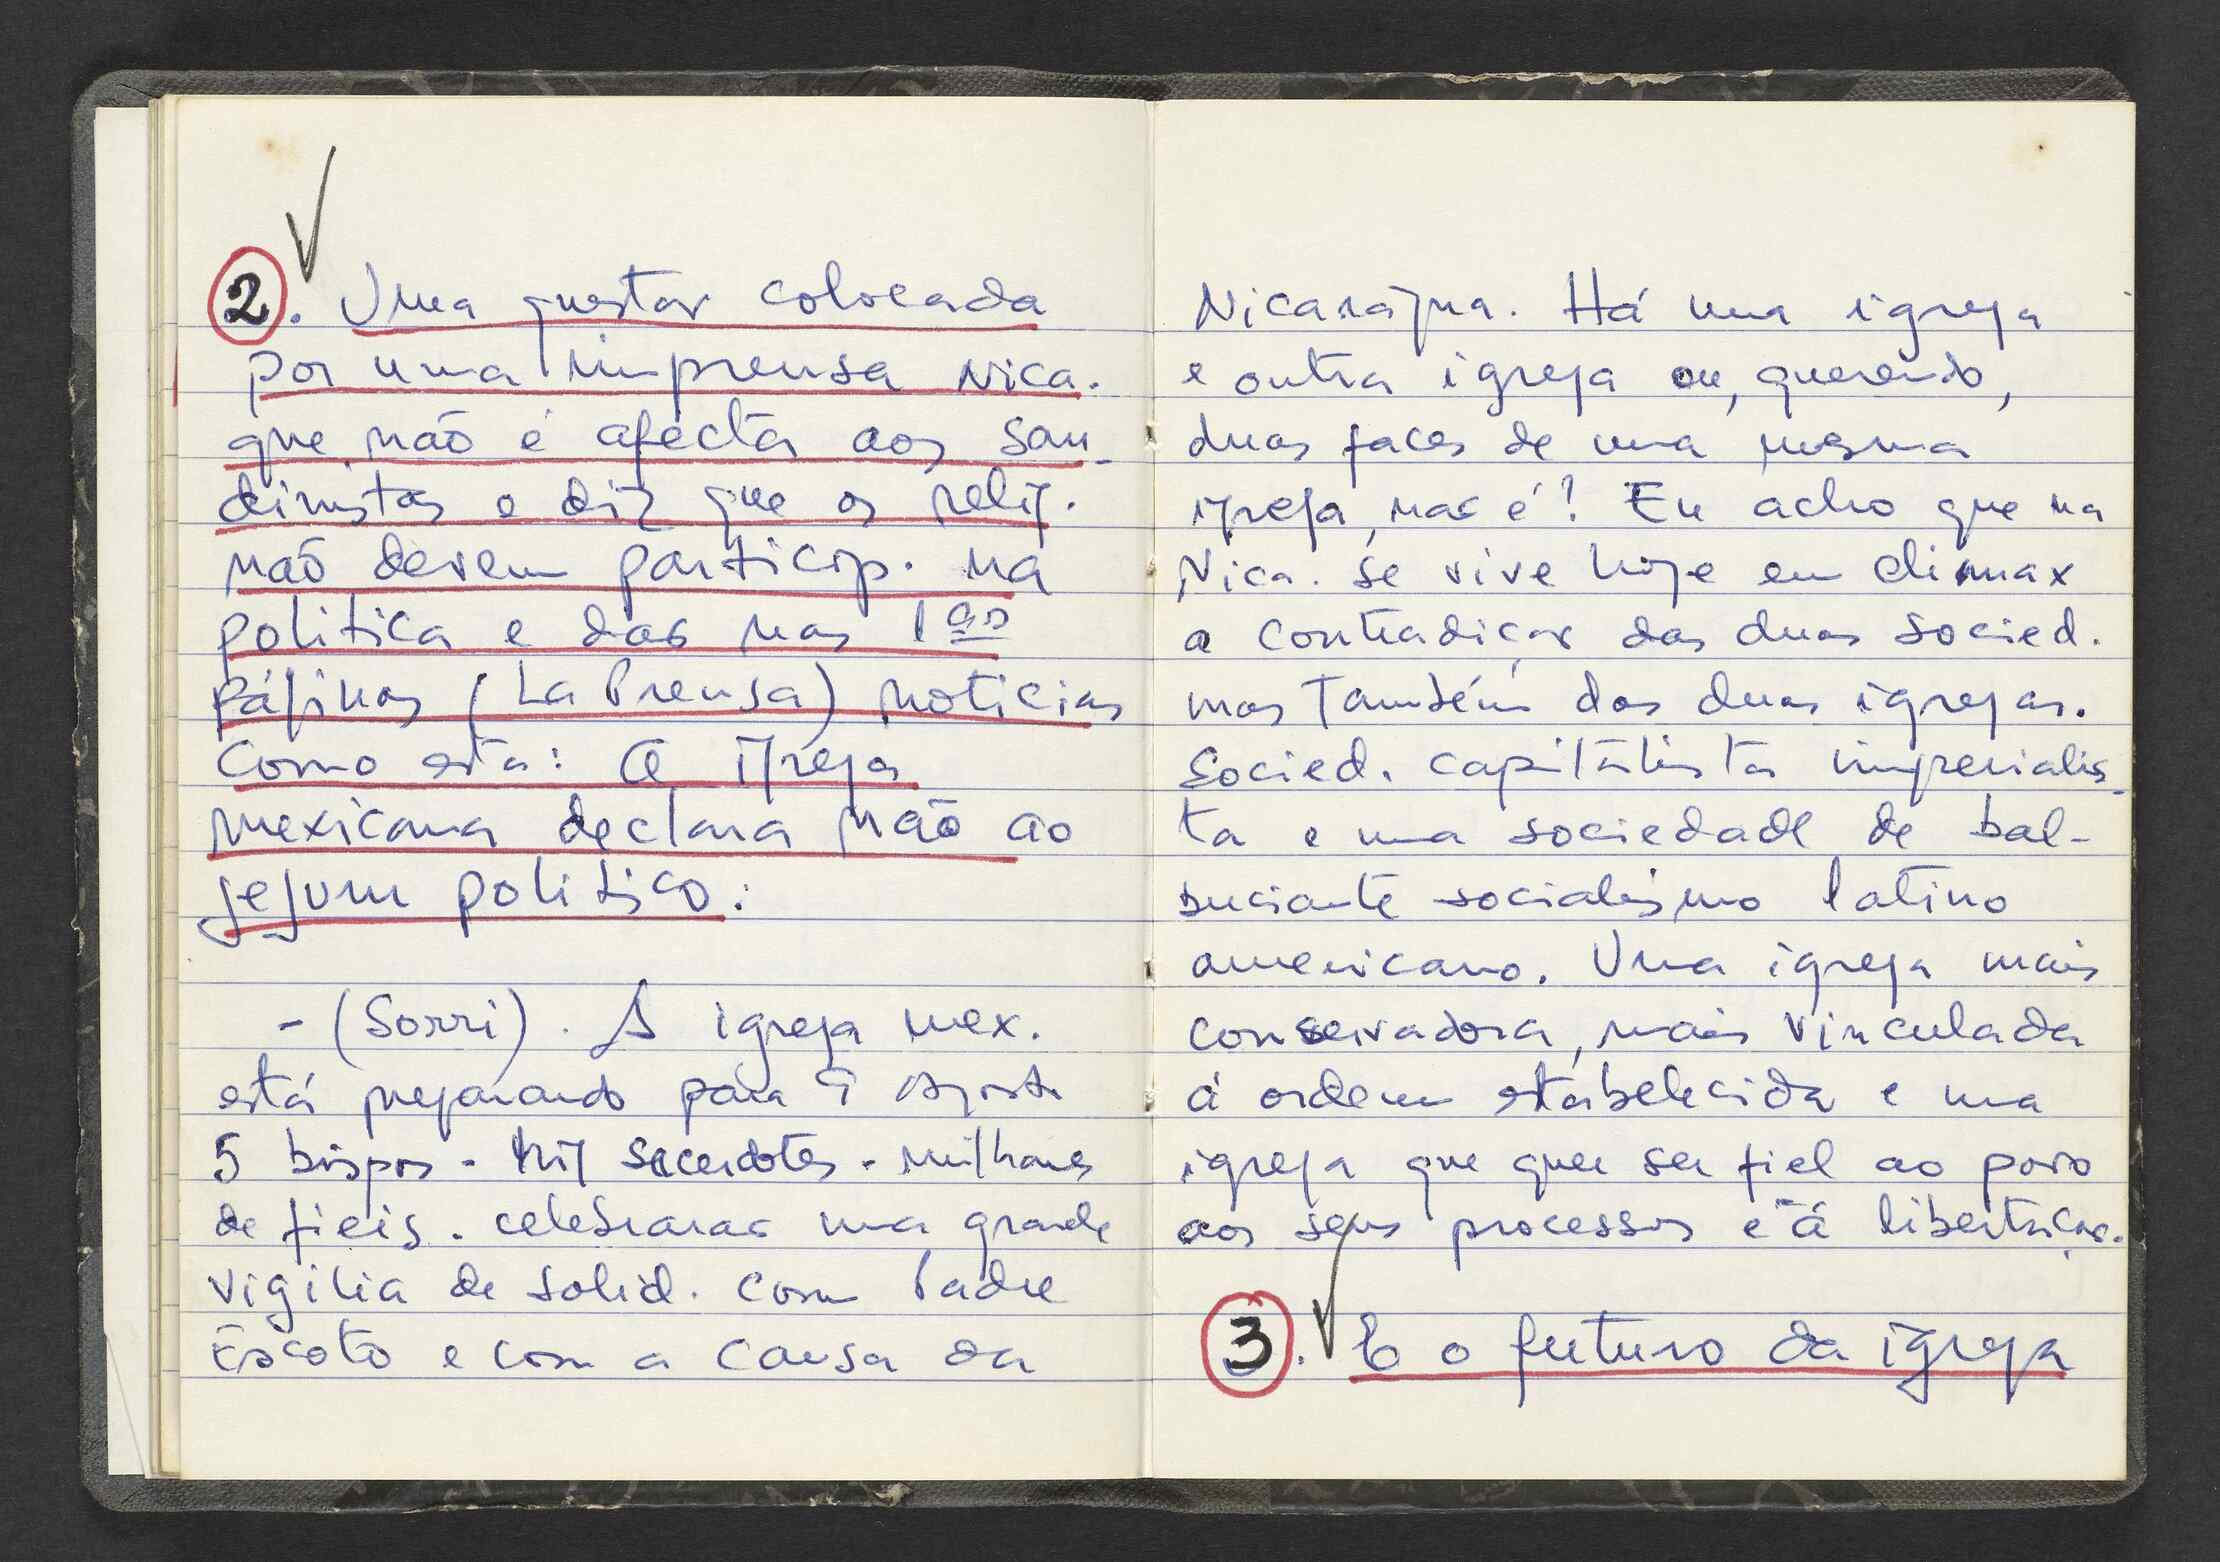 2. Uma questão colocada
por uma imprensa Nica.
que não é afecta aos San-
dinistas e diz que os relig.
não devem particip. na
politica e das nas 1as
páginas (La Prensa) noticias
como esta: a igreja
mexicana declara não ao
jejum politico:
- (Sorri). A igreja mex.
está preparando para 9 Agosto
5 bispos - mil sacerdotes - milhares
de fieis. celebrarão uma grande
vigilia de solid. com Padre
Escoto e com a causa da
Nicarágua. Há uma igreja
e outra igreja ou, querendo,
duas faces de uma mesma
igreja, não é? Eu acho que na
Nica. se vive hoje em climax
a contradição das duas socied.
mas também das duas igrejas.
Socied. capitalista imperialis-
ta e uma sociedade de bal-
buciante socialismo latino
americano. Uma igreja mais
conservadora, mais vinculada
á ordem estabelecida e uma
igreja que quer ser fiel ao povo
aos seus processos e á libertação.
3. E o futuro da igreja